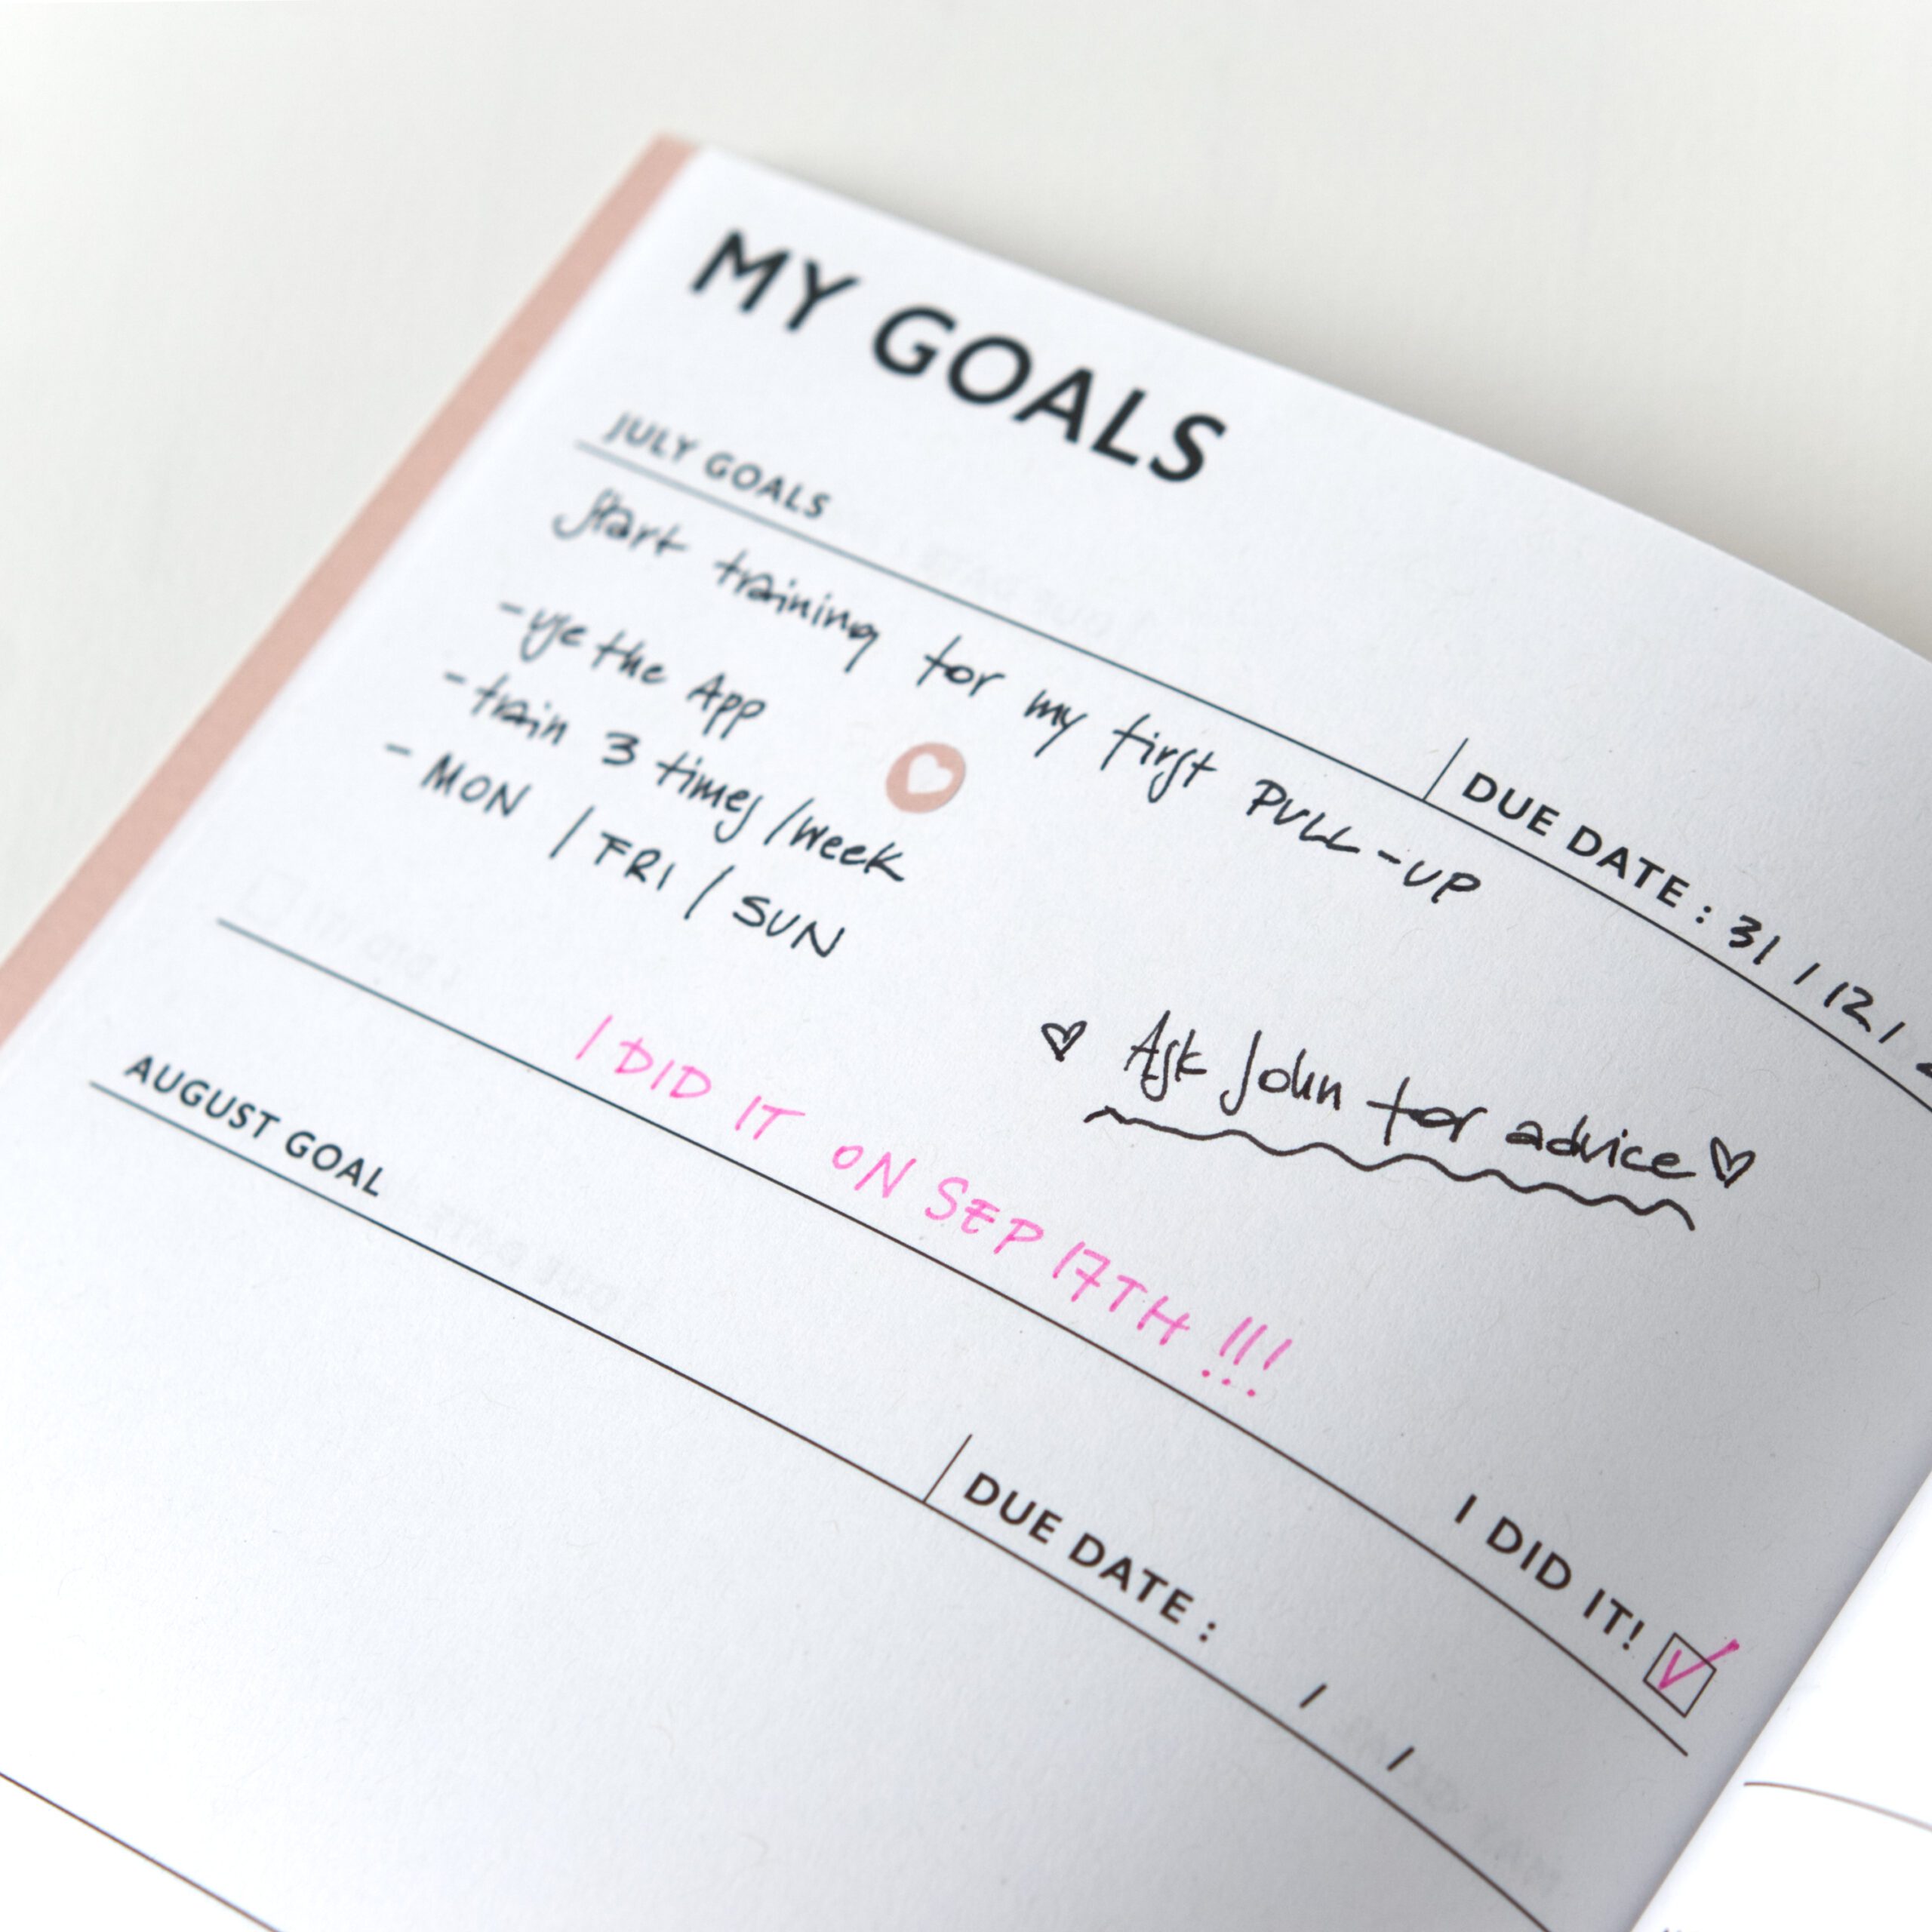 MY GOALS
JULY GOALS
DUE DATE : 31 / 12 /
Start training for my first PULL-UP
- use the App
- train 3 times/week
- MON / FRI / SUN
♡ Ask John for advice ♡
I DID IT ON SEP 17TH !!!
I DID IT!
AUGUST GOAL
DUE DATE : / /